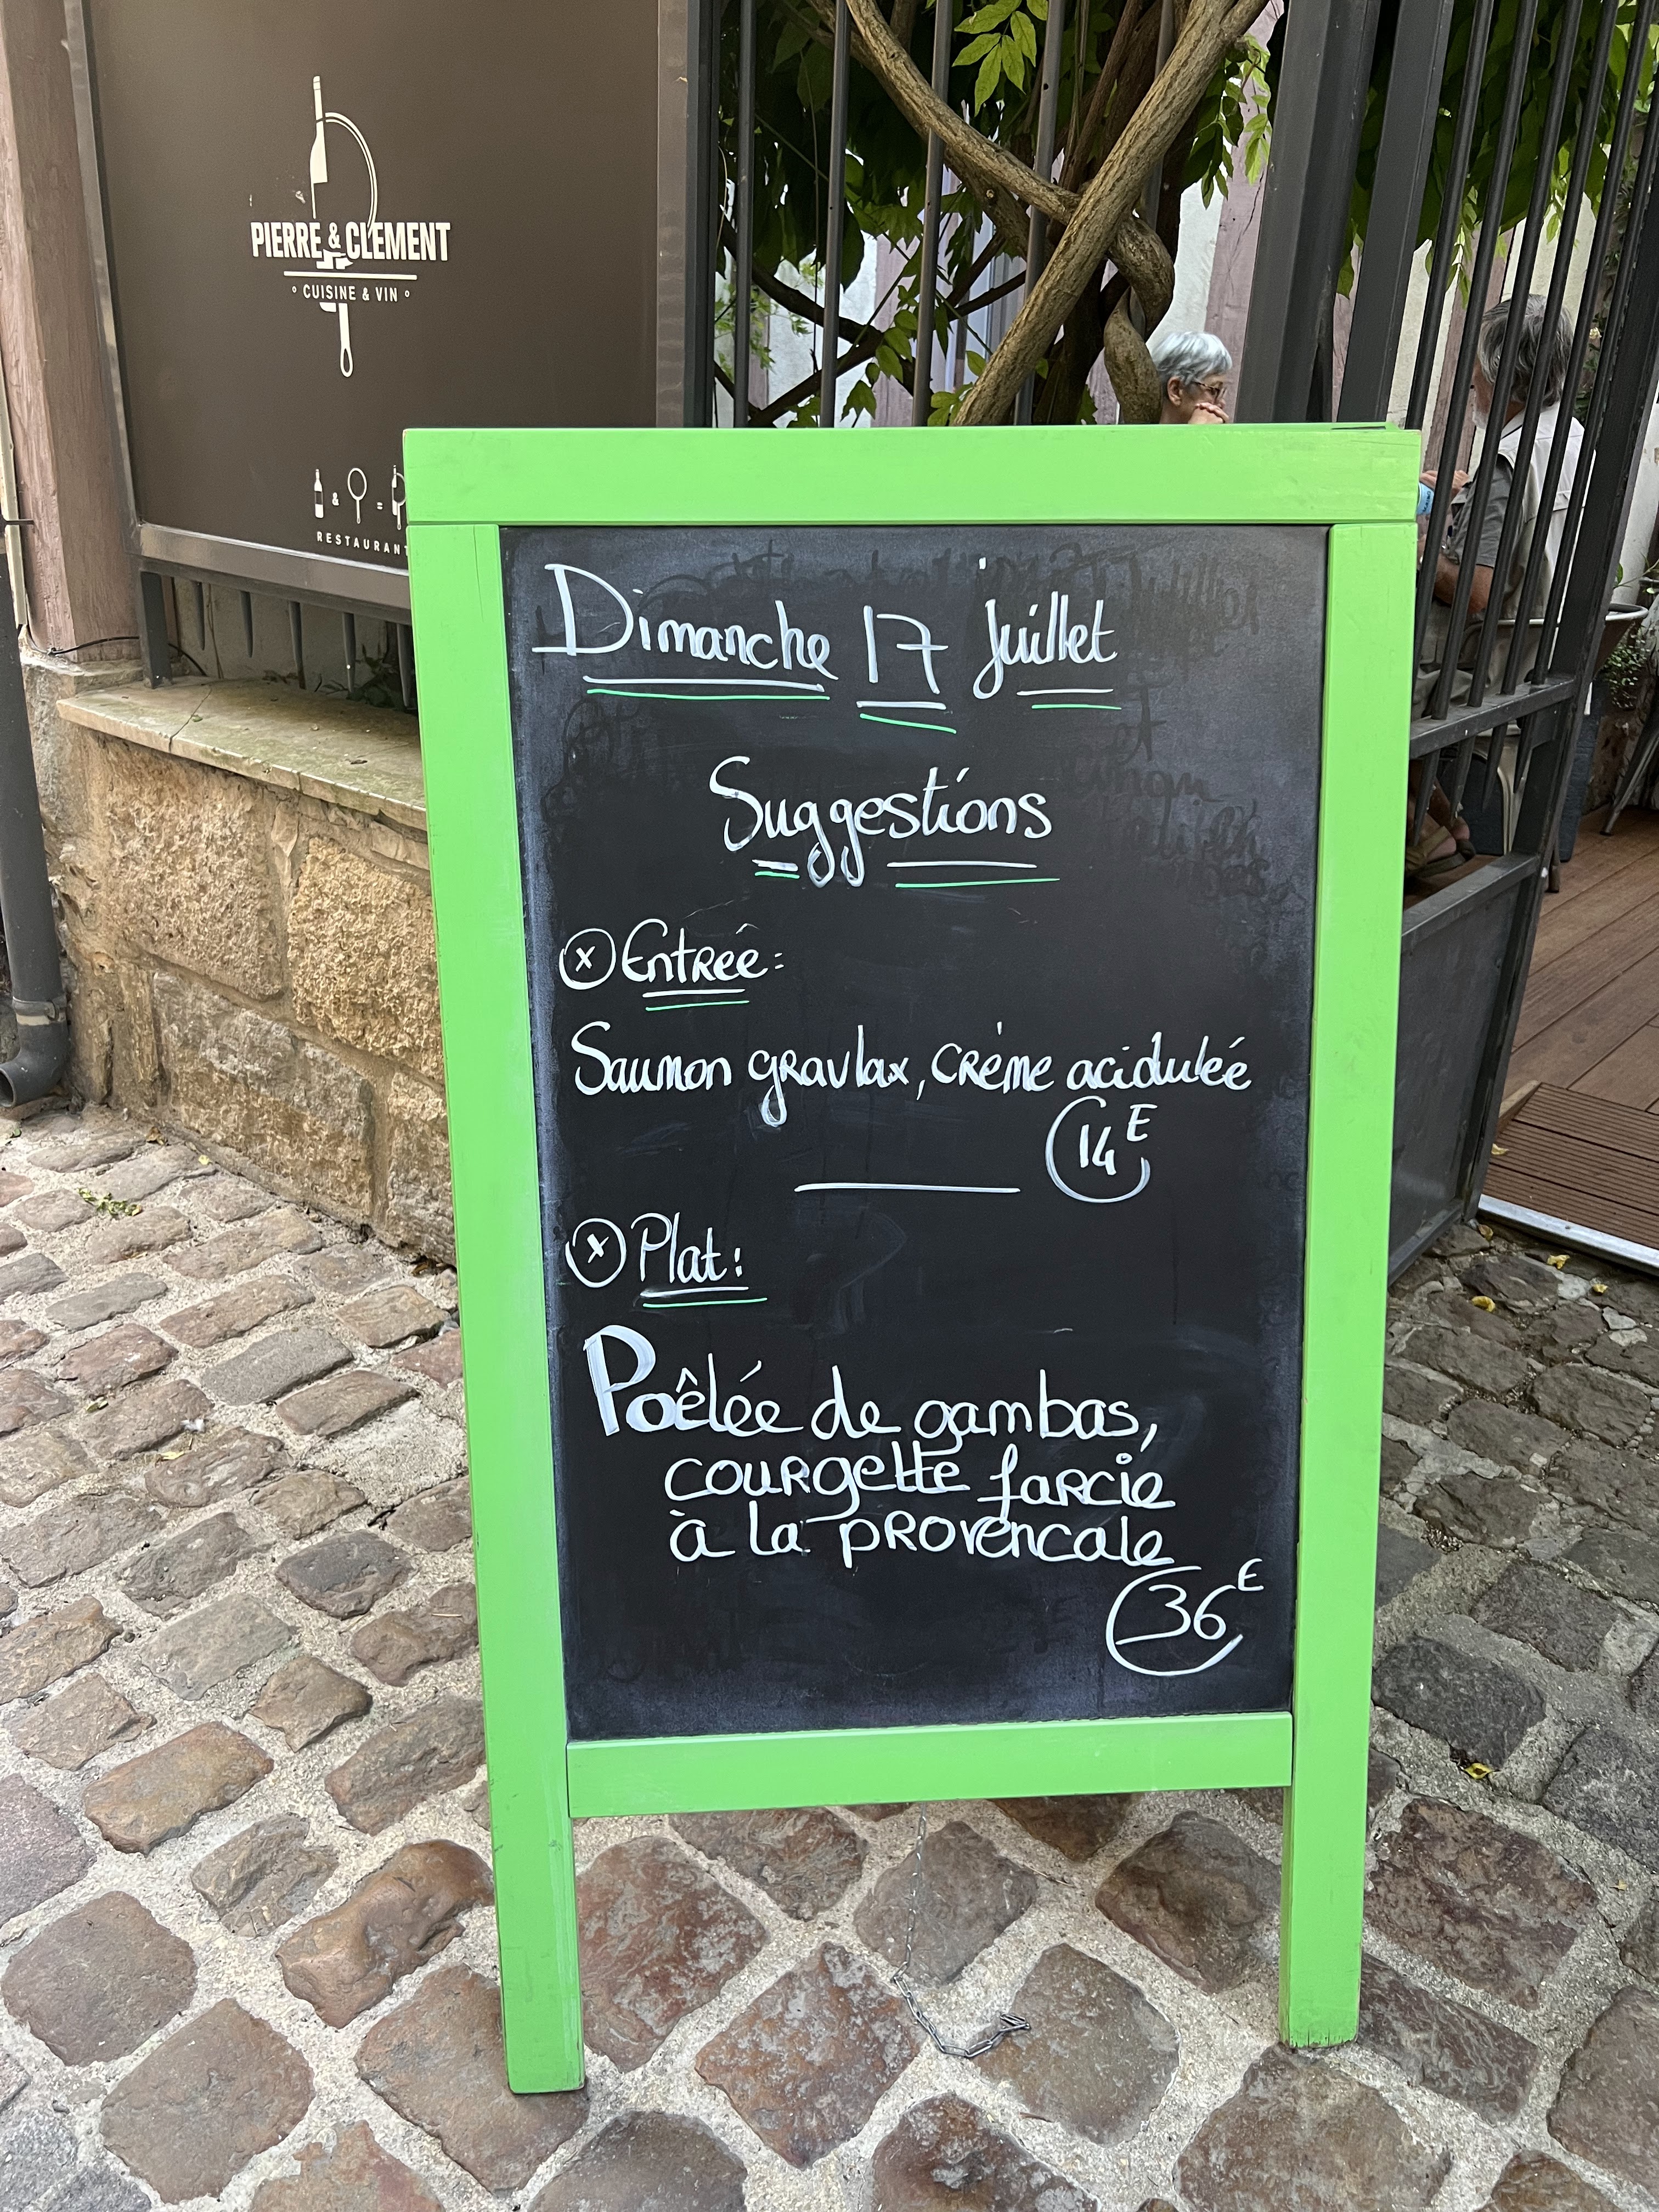 PIERRE & CLEMENT
CUISINE & VIN
& =
RESTAURANT
Dimanche 17 juillet
Suggestions
Entrée:
Saumon gravlax, crème acidulée
14E
Plat:
Poêlée de gambas,
courgette farcie
à la provencale
36E